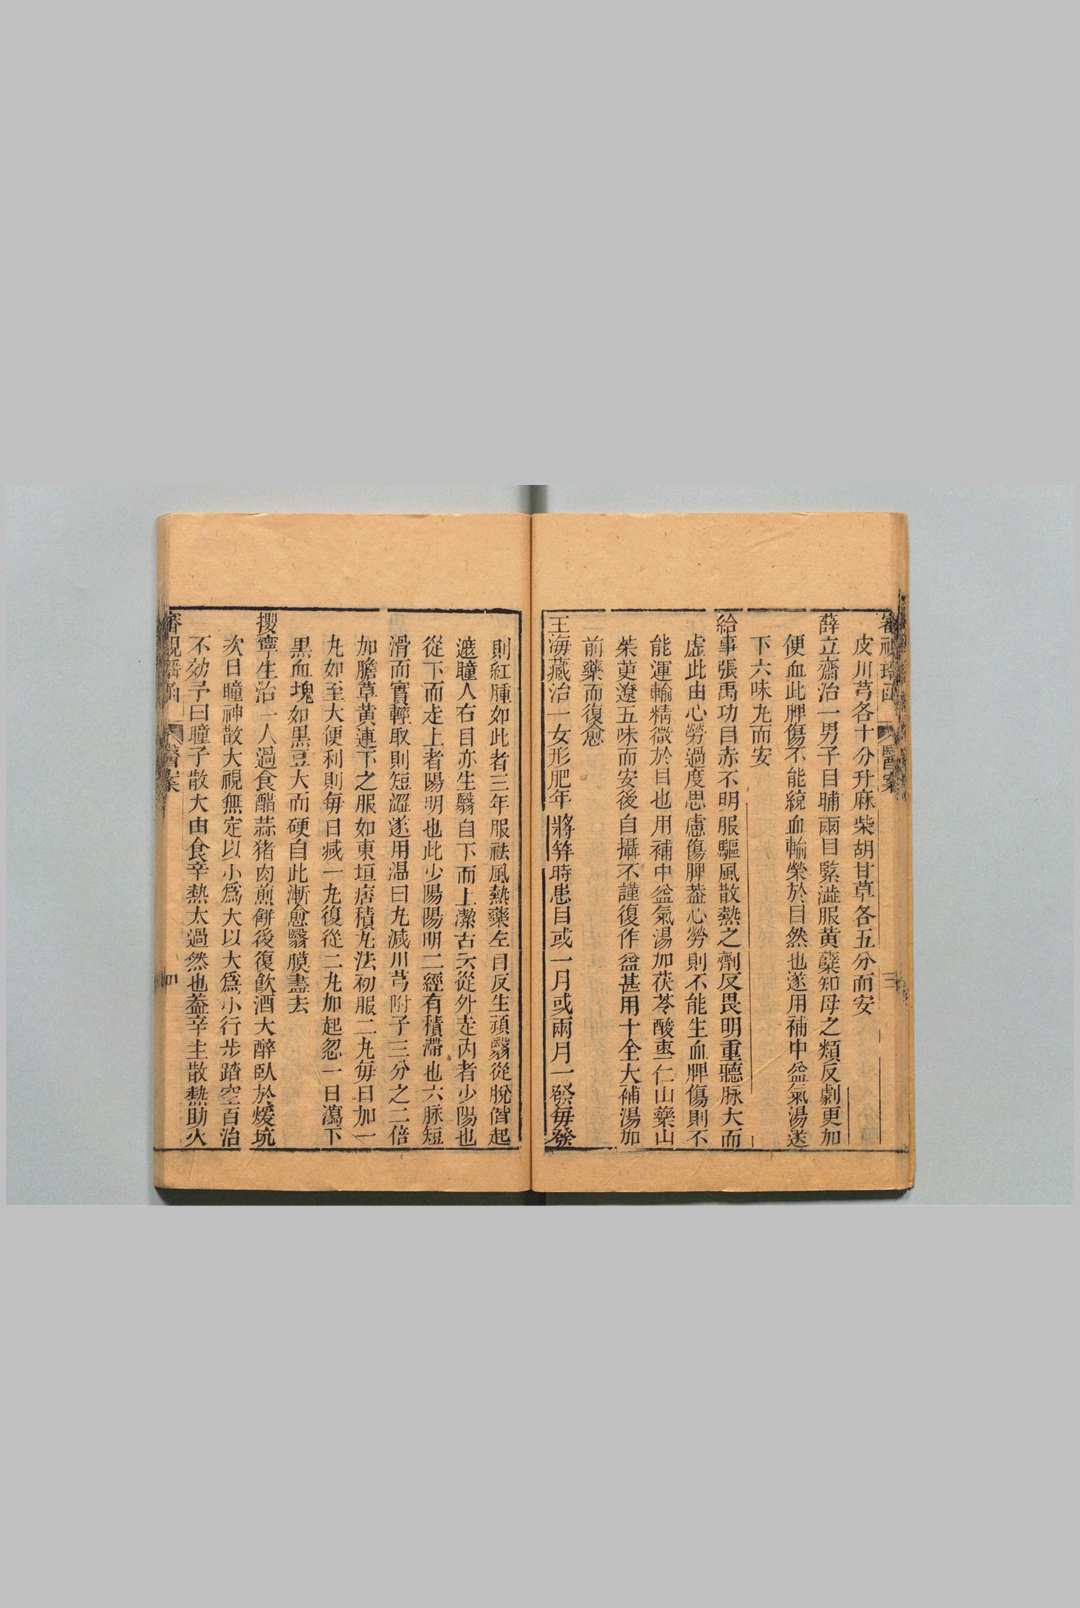 皮川芎各十分升麻柴胡甘草各五分而安
薛立齋治一男子目晡兩目緊澁服黃蘗知母之類反劇更加
便血此脾傷不能統血輸榮於目然也遂用補中益氣湯送
下六味丸而安
給事張禹功目赤不明服驅風散熱之劑反畏明重聽脉大而
虛此由心勞過度思慮傷脾葢心勞則不能生血脾傷則不
能運輸精微於目也用補中益氣湯加茯苓酸棗仁山藥山
茱萸遼五味而安後自攝不謹復作益甚用十全大補湯加
前藥而復愈
王海藏治一女形肥年將笄時患目或一月或兩月一發每發
則紅腫如此者三年服祛風熱藥左目反生頑翳從脫偕起
遮瞳人右目亦生翳自下而上潔古云從外走內者少陽也
從下而走上者陽明也此少陽陽明二經有積滯也六脉短
滑而實輕取則短澀遂用温曰丸減川芎附子三分之二倍
加膽草黃連下之服如東垣痞積丸法初服二丸毎日加一
丸如至大便利則毎日減一丸復從二丸加起忽一日瀉下
黑血塊如黑豆大而硬自此漸愈翳膜盡去
攖寧生治一人過食醋蒜猪肉煎餅後復飮酒大醉臥於煖炕
次日瞳神散大視無定以小爲大以大爲小行步踏空百治
不効予曰瞳子散大由食辛熱太過然也葢辛主散熱助火
醫案
四
醫案
三